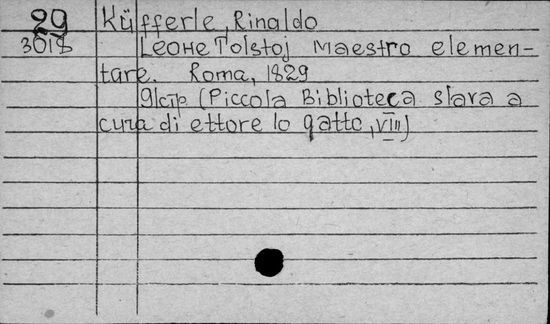 29 Küfferle, Rinaldo
3018 Leone Tolstoj Maestro elemen-
tare. Roma, 1829
91стр (Piccola Biblioteca slava a
cura di ettore lo gatto, VIII)